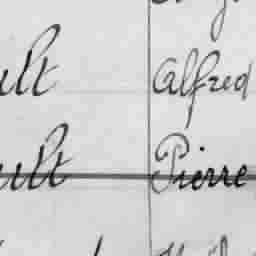 ult Alfred
ult Pierre